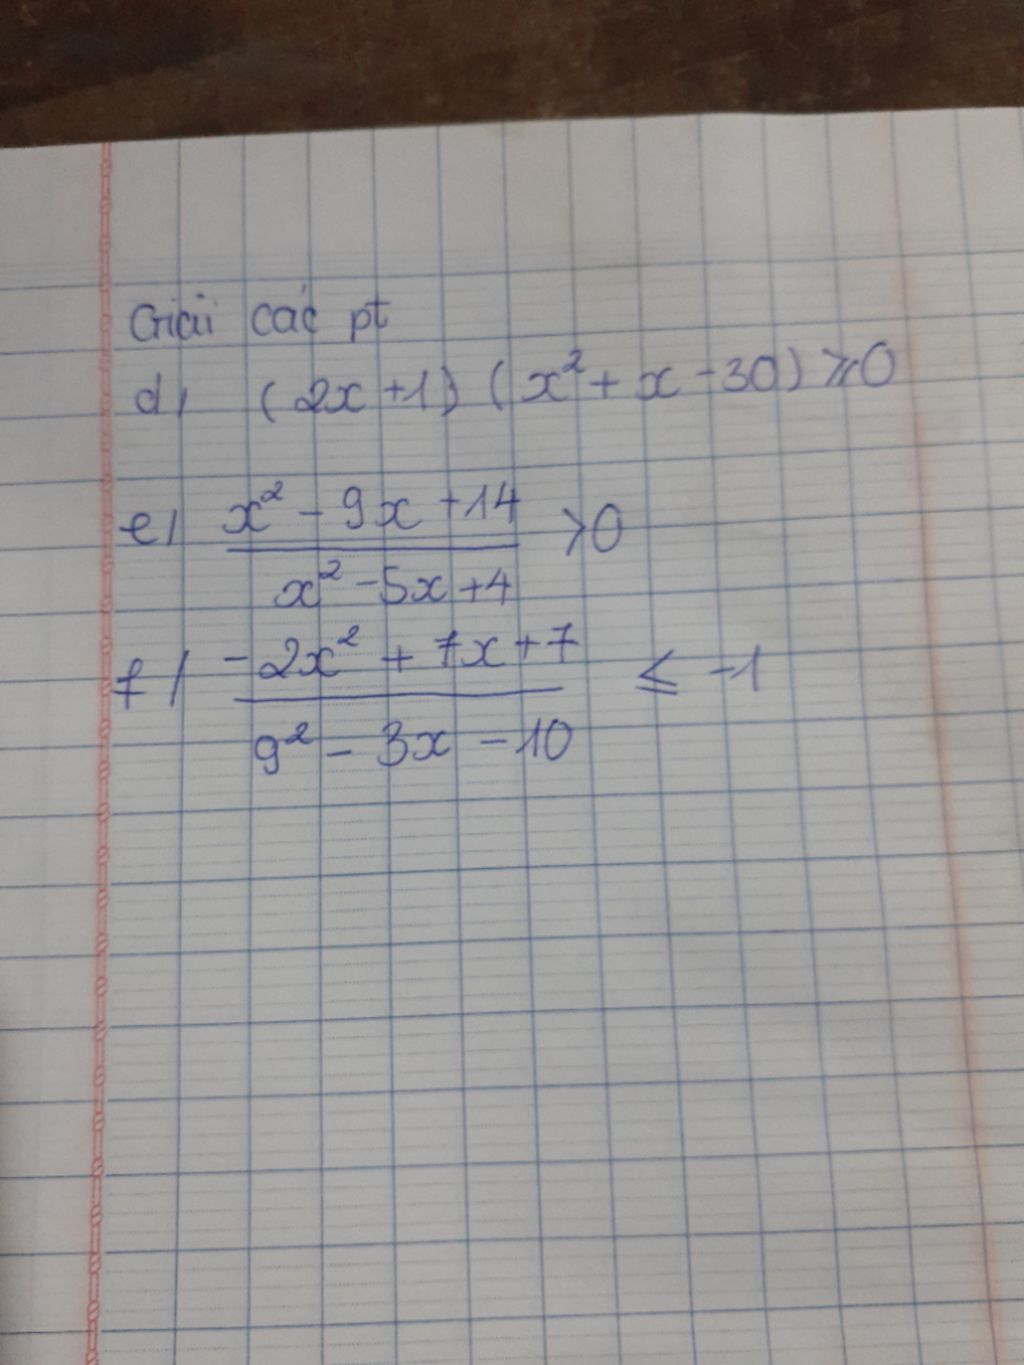 Giải các pt
d/ (2x+1) (x² + x - 30) ≥ 0
e/ x² - 9x + 14 > 0
x² - 5x + 4
f/ -2x² + 7x + 7 ≤ -1
9² - 3x - 10